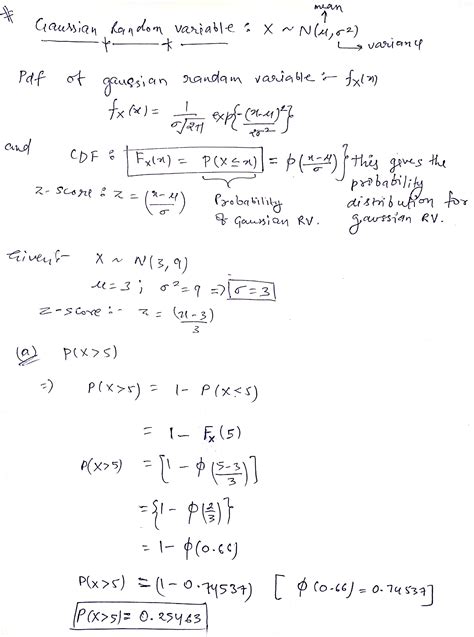 mean
* Gaussian Random variable : X ~ N(μ, σ²)
→ variance
Pdf of gaussian randam variable :- fx(x)
fx(x) = 1/(σ√2π) exp{-(x-μ)²/2σ²}
and CDF : Fx(x) = P(X≤x) = φ((x-μ)/σ) } this gives the
probability
distribution for
gaussian RV.
z-score : z = ((x-μ)/σ)
Probability
of Gaussian RV.
Given :- X ~ N(3, 9)
μ=3 ; σ²=9 => σ=3
z-score :- z = (x-3)/3
(a) P(X>5)
=) P(X>5) = 1 - P(X≤5)
= 1 - Fx(5)
P(X>5) = [1 - φ((5-3)/3)]
= {1 - φ(2/3)}
= 1 - φ(0.66)
P(X>5) = (1 - 0.74537) [ φ(0.66) = 0.74537]
P(X>5) = 0.25463